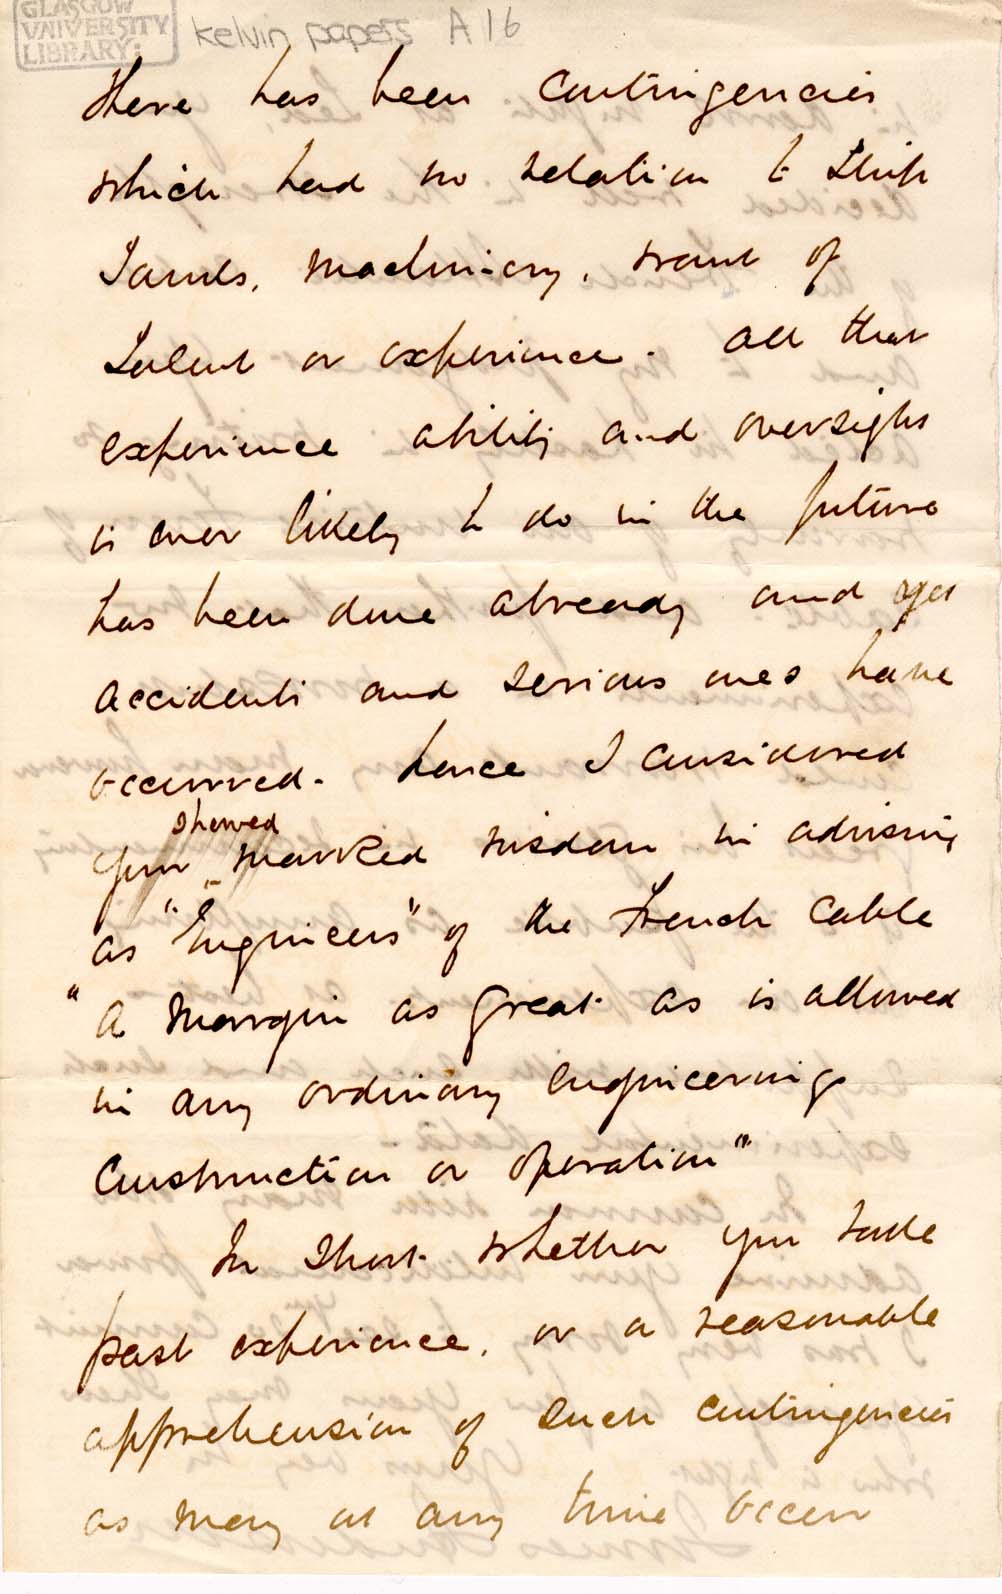 GLASGOW
UNIVERSITY
LIBRARY:
Kelvin papers A16
there has been contingencies
which had no relation to Ship
Tanks, machinery, want of
Talent or experience. All that
experience ability and oversight
is ever likely to do in the future
has been done already and yet
accidents and serious ones have
occurred. hence I considered
showed
you marked wisdom in advising
as "Engineers" of the French Cable
"a margin as great as is allowed
in any ordinary engineering
Construction or operation"
In short whether you take
past experience, or a reasonable
apprehension of such contingencies
as may at any time occur